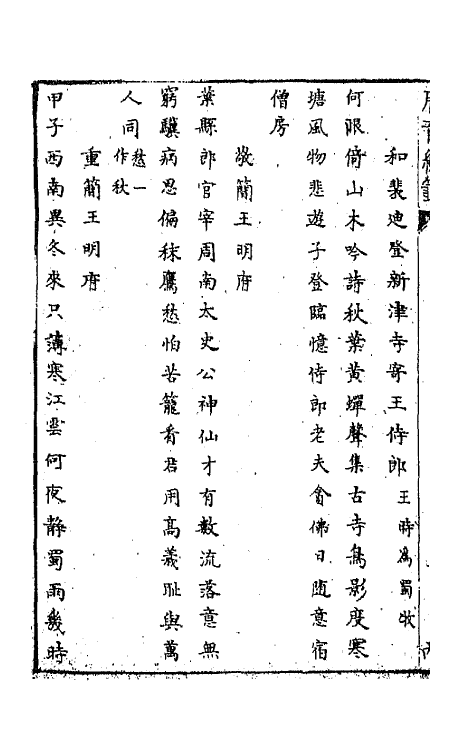 和裴迪登新津寺寄王侍郎 王時爲蜀牧
何限倚山木吟詩秋葉黃蟬聲集古寺鳥影度寒
塘風物悲遊子登臨憶侍郎老夫貪佛日随意宿
僧房
敬簡王明府
葉縣郎官宰周南太史公神仙才有數流落意無
窮驥病思偏秣鷹愁怕苦籠看君用高義恥與萬
人同 愁一作秋
重簡王明府
甲子西南異冬來只薄寒江雲何夜静蜀雨幾時